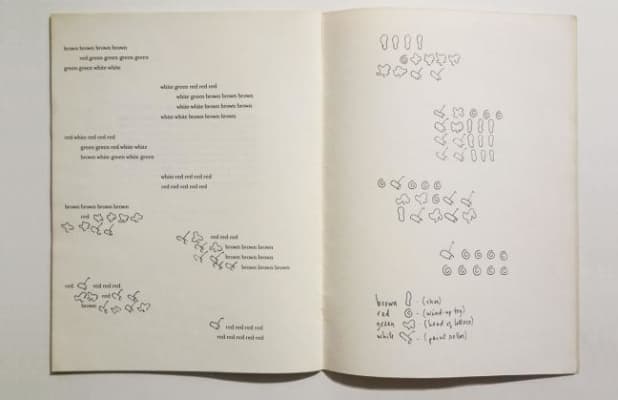 brown brown brown brown
red green green green green
green green white white
white green red red red
white green brown brown brown
white white brown brown brown
white white brown brown brown
red white red red red
green green red white white
brown white green white green
white red red red red
red red red red red
brown brown brown brown
red
red red red
brown brown brown
brown brown brown
brown brown brown
red red red red
red
brown
red red red red
red red red red red
brown - (shoe)
red - (wind-up toy)
green - (head of lettuce)
white - (paint roller)